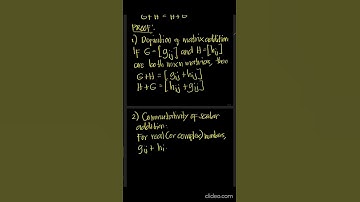 G+H = H+G
PROOF:
1) Definition of matrix addition
If G = [gij] and H = [hij]
are both mxn matrices, then
G+H = [gij + hij]
H+G = [hij + gij]
2) Commutativity of scalar
addition.
For real (or complex) numbers,
gij + hi
clideo.com